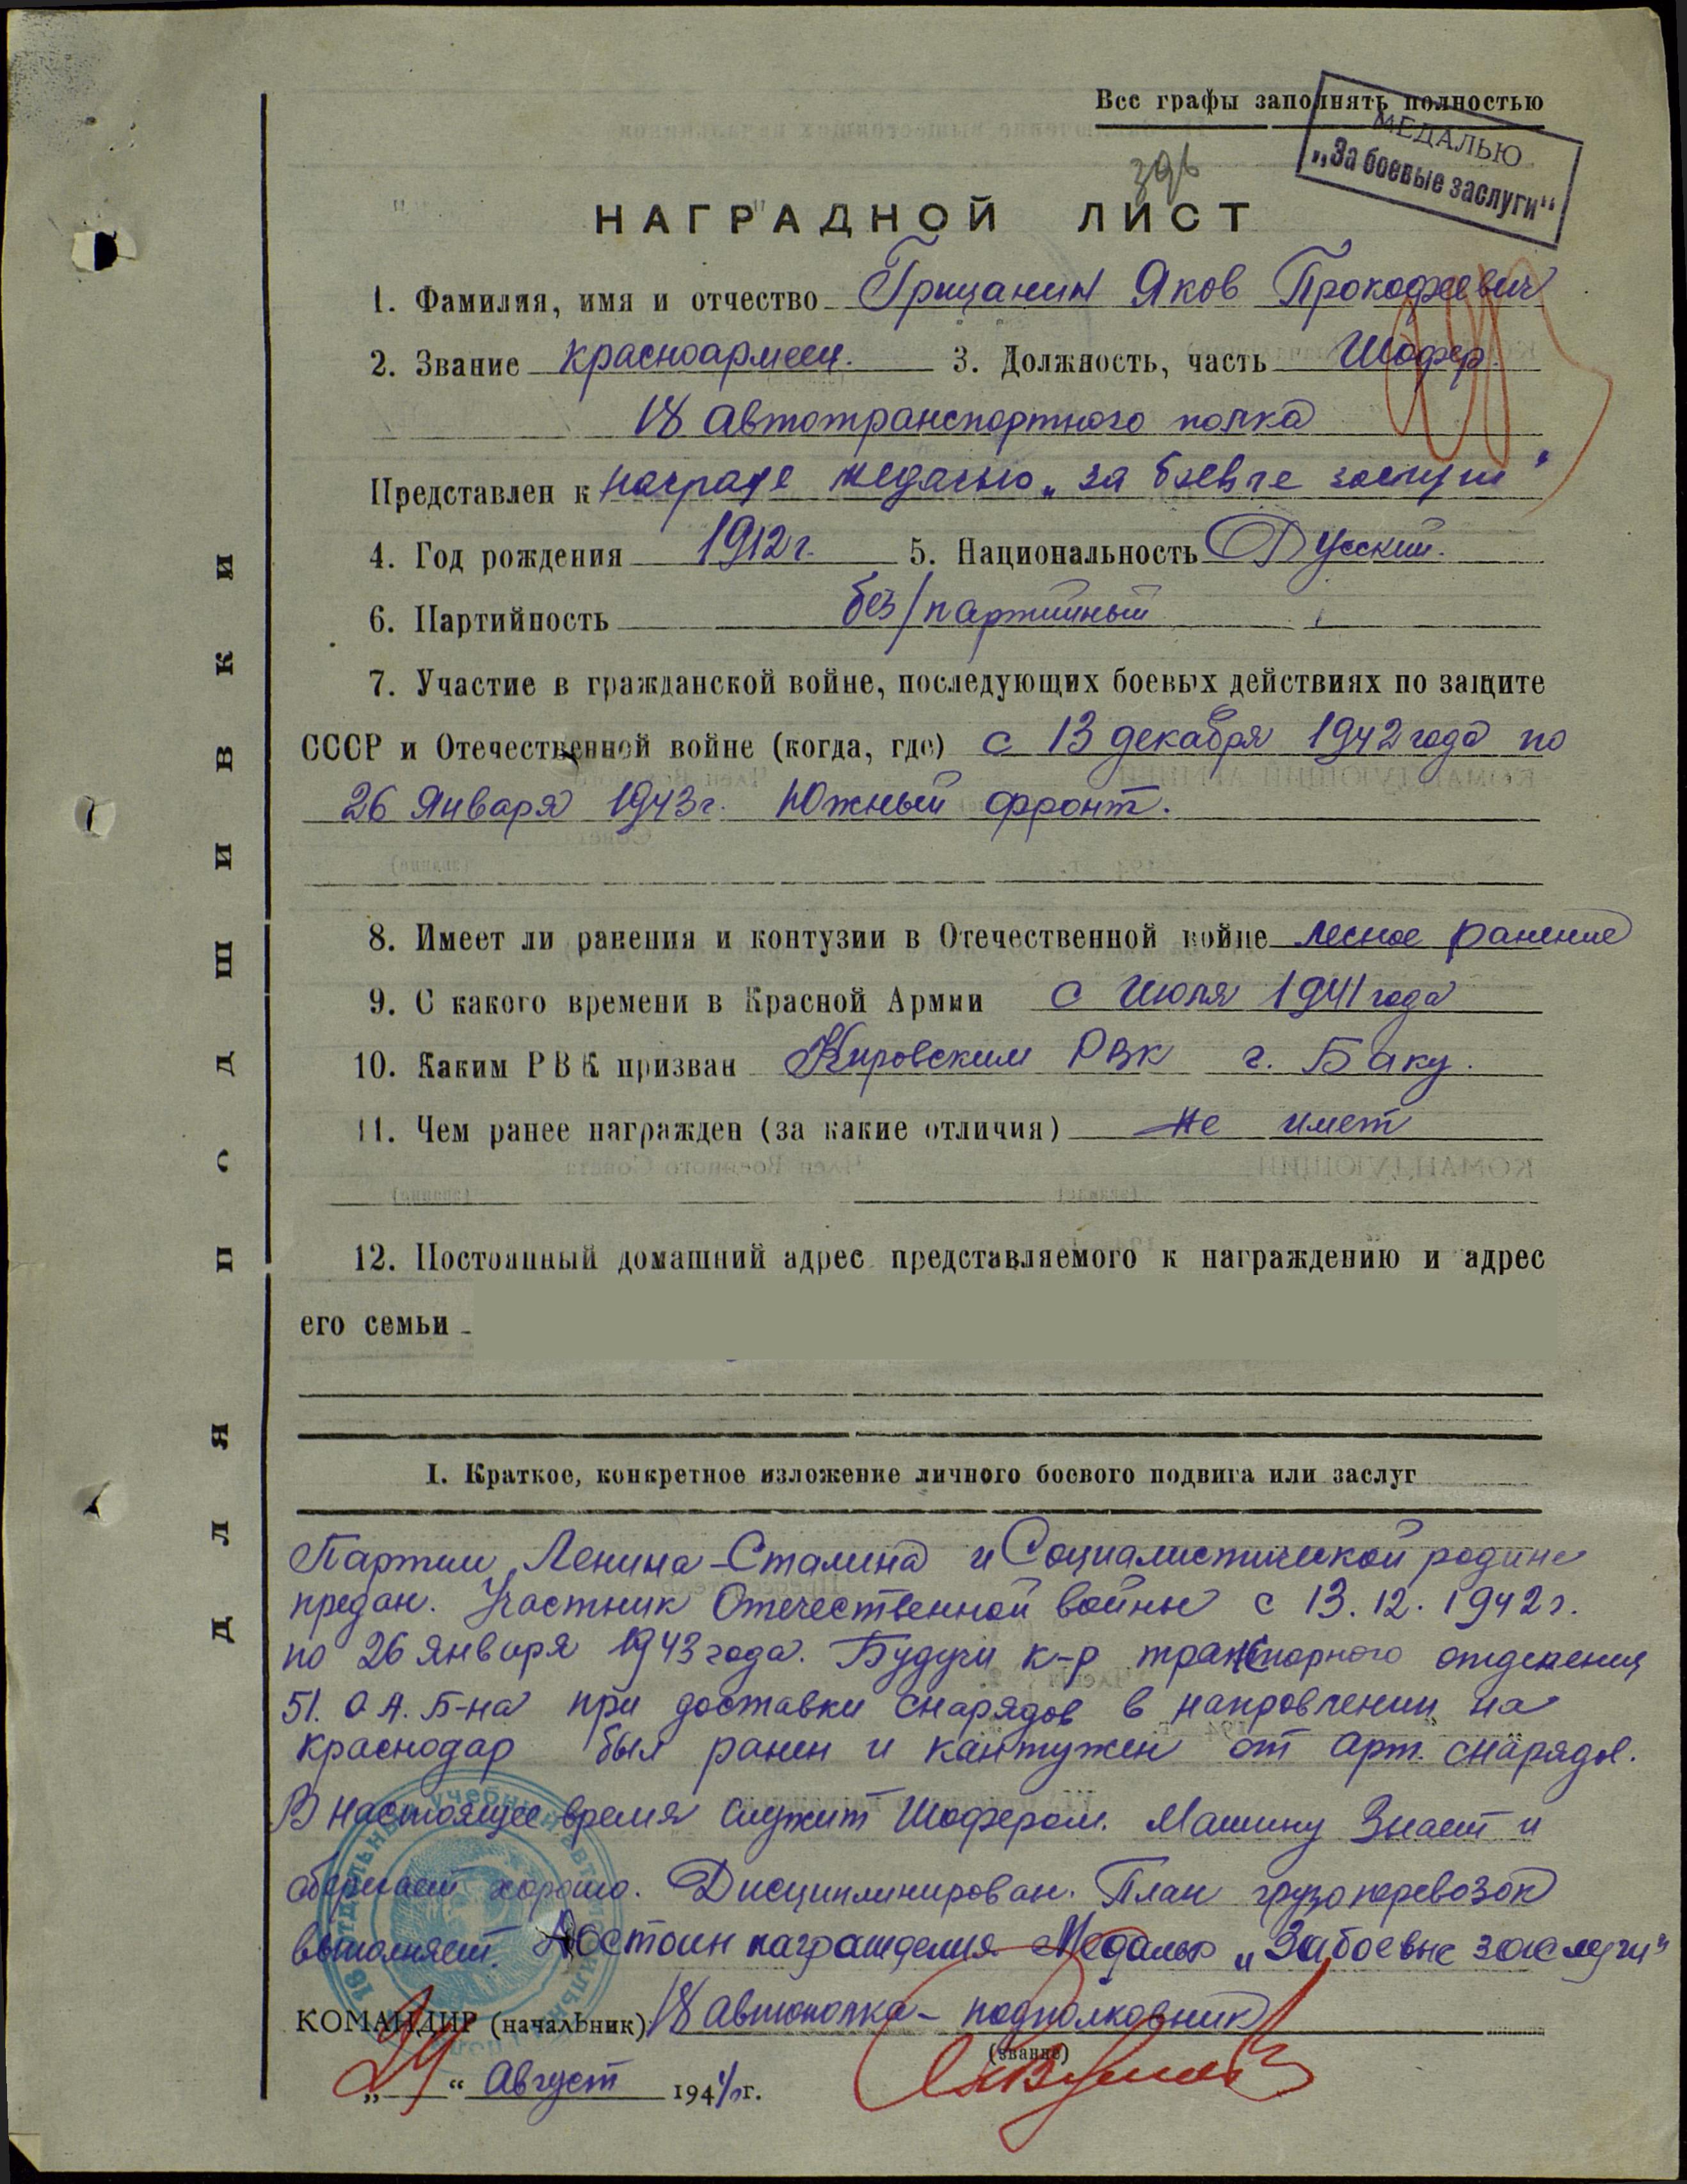 Все графы заполнять полностью
МЕДАЛЬЮ
„За боевые заслуги“
НАГРАДНОЙ ЛИСТ
1. Фамилия, имя и отчество Грицанин Яков Прокофеевич
2. Звание красноармеец. 3. Должность, часть Шофер
18 автотранспортного полка
Представлен к награде медалью „за боевые заслуги“
4. Год рождения 1912 г. 5. Национальность Русский.
6. Партийность без/партийный
7. Участие в гражданской войне, последующих боевых действиях по защите
СССР и Отечественной войне (когда, где) с 13 декабря 1942 года по
26 Января 1943 г. Южный фронт.
8. Имеет ли ранения и контузии в Отечественной войне ранение
9. С какого времени в Красной Армии с Июля 1941 года
10. Каким РВК призван Кировским РВК г. Баку.
11. Чем ранее награжден (за какие отличия) не имеет
12. Постоянный домашний адрес представляемого к награждению и адрес
его семьи
I. Краткое, конкретное изложение личного боевого подвига или заслуг
Партии Ленина-Сталина и Социалистической родине
предан. Участник Отечественной войны с 13.12.1942 г.
по 26 Января 1943 года. Будучи к-р отделения
51. О А. Б-на при доставки снарядов в направлении на
Краснодар был ранен и кантужен от арт. снаряда.
В настоящее время служит Шофером. Машину Знает и
оберегает хорошо. Дисциплинирован. План грузоперевозок
выполняет. Достоин награждения Медалью „За боевые заслуги“
КОМАНДИР (начальник) 18 автополка - подполковник
(звание)
„24“ Август 1944 г.
ДЛЯ ПОДШИВКИ